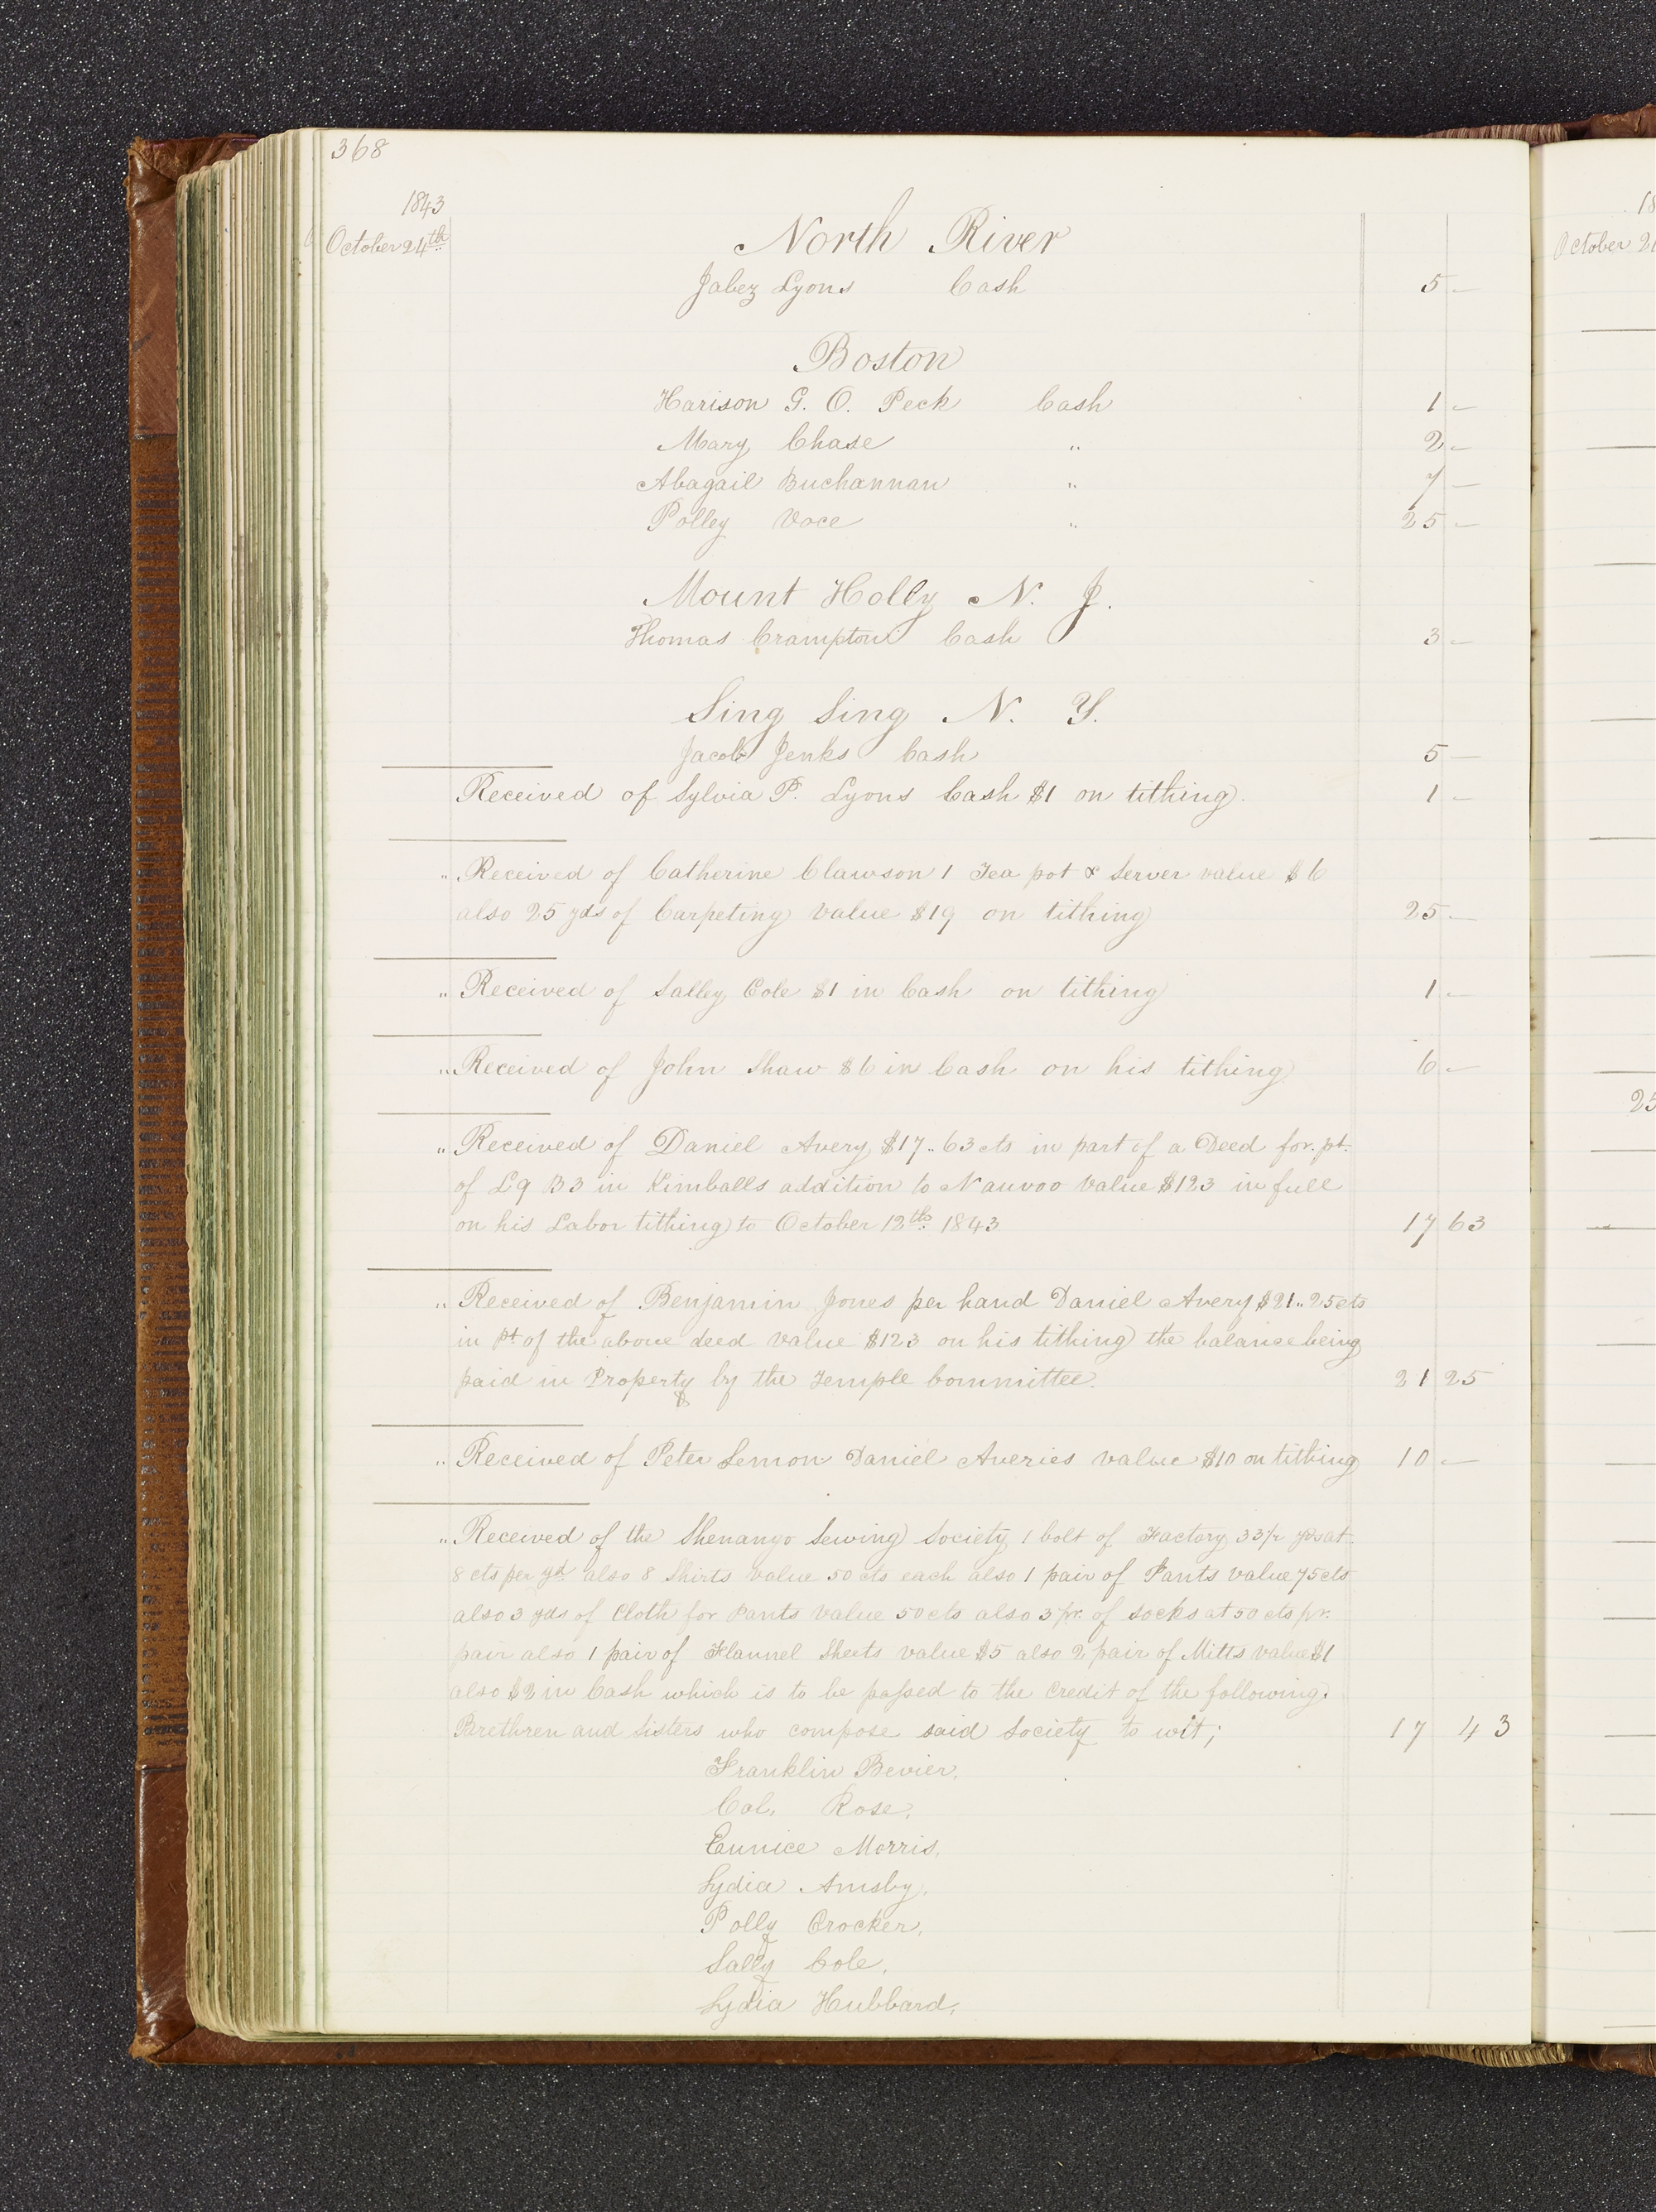 368
1843
October 24th
North River
Jabez Lyons Cash 5 –
Boston
Harison G. O. Peck Cash 1 –
Mary Chase " 2 –
Abagail Buchannan " 7 –
Polley Voce " 25 –
Mount Holly N. J.
Thomas Crampton Cash 3 –
Sing Sing N. Y.
Jacob Jenks Cash 5 –
Received of Sylvia P. Lyons Cash $1 on tithing. 1 –
" Received of Catherine Clawson 1 Tea pot & Server value $6
also 25 yds of Carpeting value $19 on tithing 25 –
" Received of Salley Cole $1 in Cash on tithing 1 –
" Received of John Shaw $6 in Cash on his tithing 6 –
" Received of Daniel Avery $17..63 cts in part of a Deed for. pt.
of L9 B3 in Kimballs addition to Nauvoo value $123 in full
on his Labor tithing to October 12th 1843 17 63
" Received of Benjamin Jones per hand Daniel Avery $21..25 cts
in pt of the above deed value $123 on his tithing the balance being
paid in Property by the Temple Committee. 21 25
" Received of Peter Lemon Daniel Averies value $10 on tithing 10 –
" Received of the Shenango Sewing Society 1 bolt of Factory 33½ yds at
8 cts per yd also 8 Shirts value 50 cts each also 1 pair of Pants value 75 cts
also 3 yds of Cloth for Pants value 50 cts also 3 pr. of socks at 50 cts pr.
pair also 1 pair of Flannel Sheets value $5 also 2 pair of Mitts value $1
also $2 in Cash which is to be passed to the Credit of the following.
Brethren and Sisters who compose said Society to wit; 17 43
Franklin Bevier.
Cal. Rose.
Eunice Morris.
Lydia Amsby.
Polly Crocker.
Sally Cole.
Lydia Hubbard.
18
October 2
25